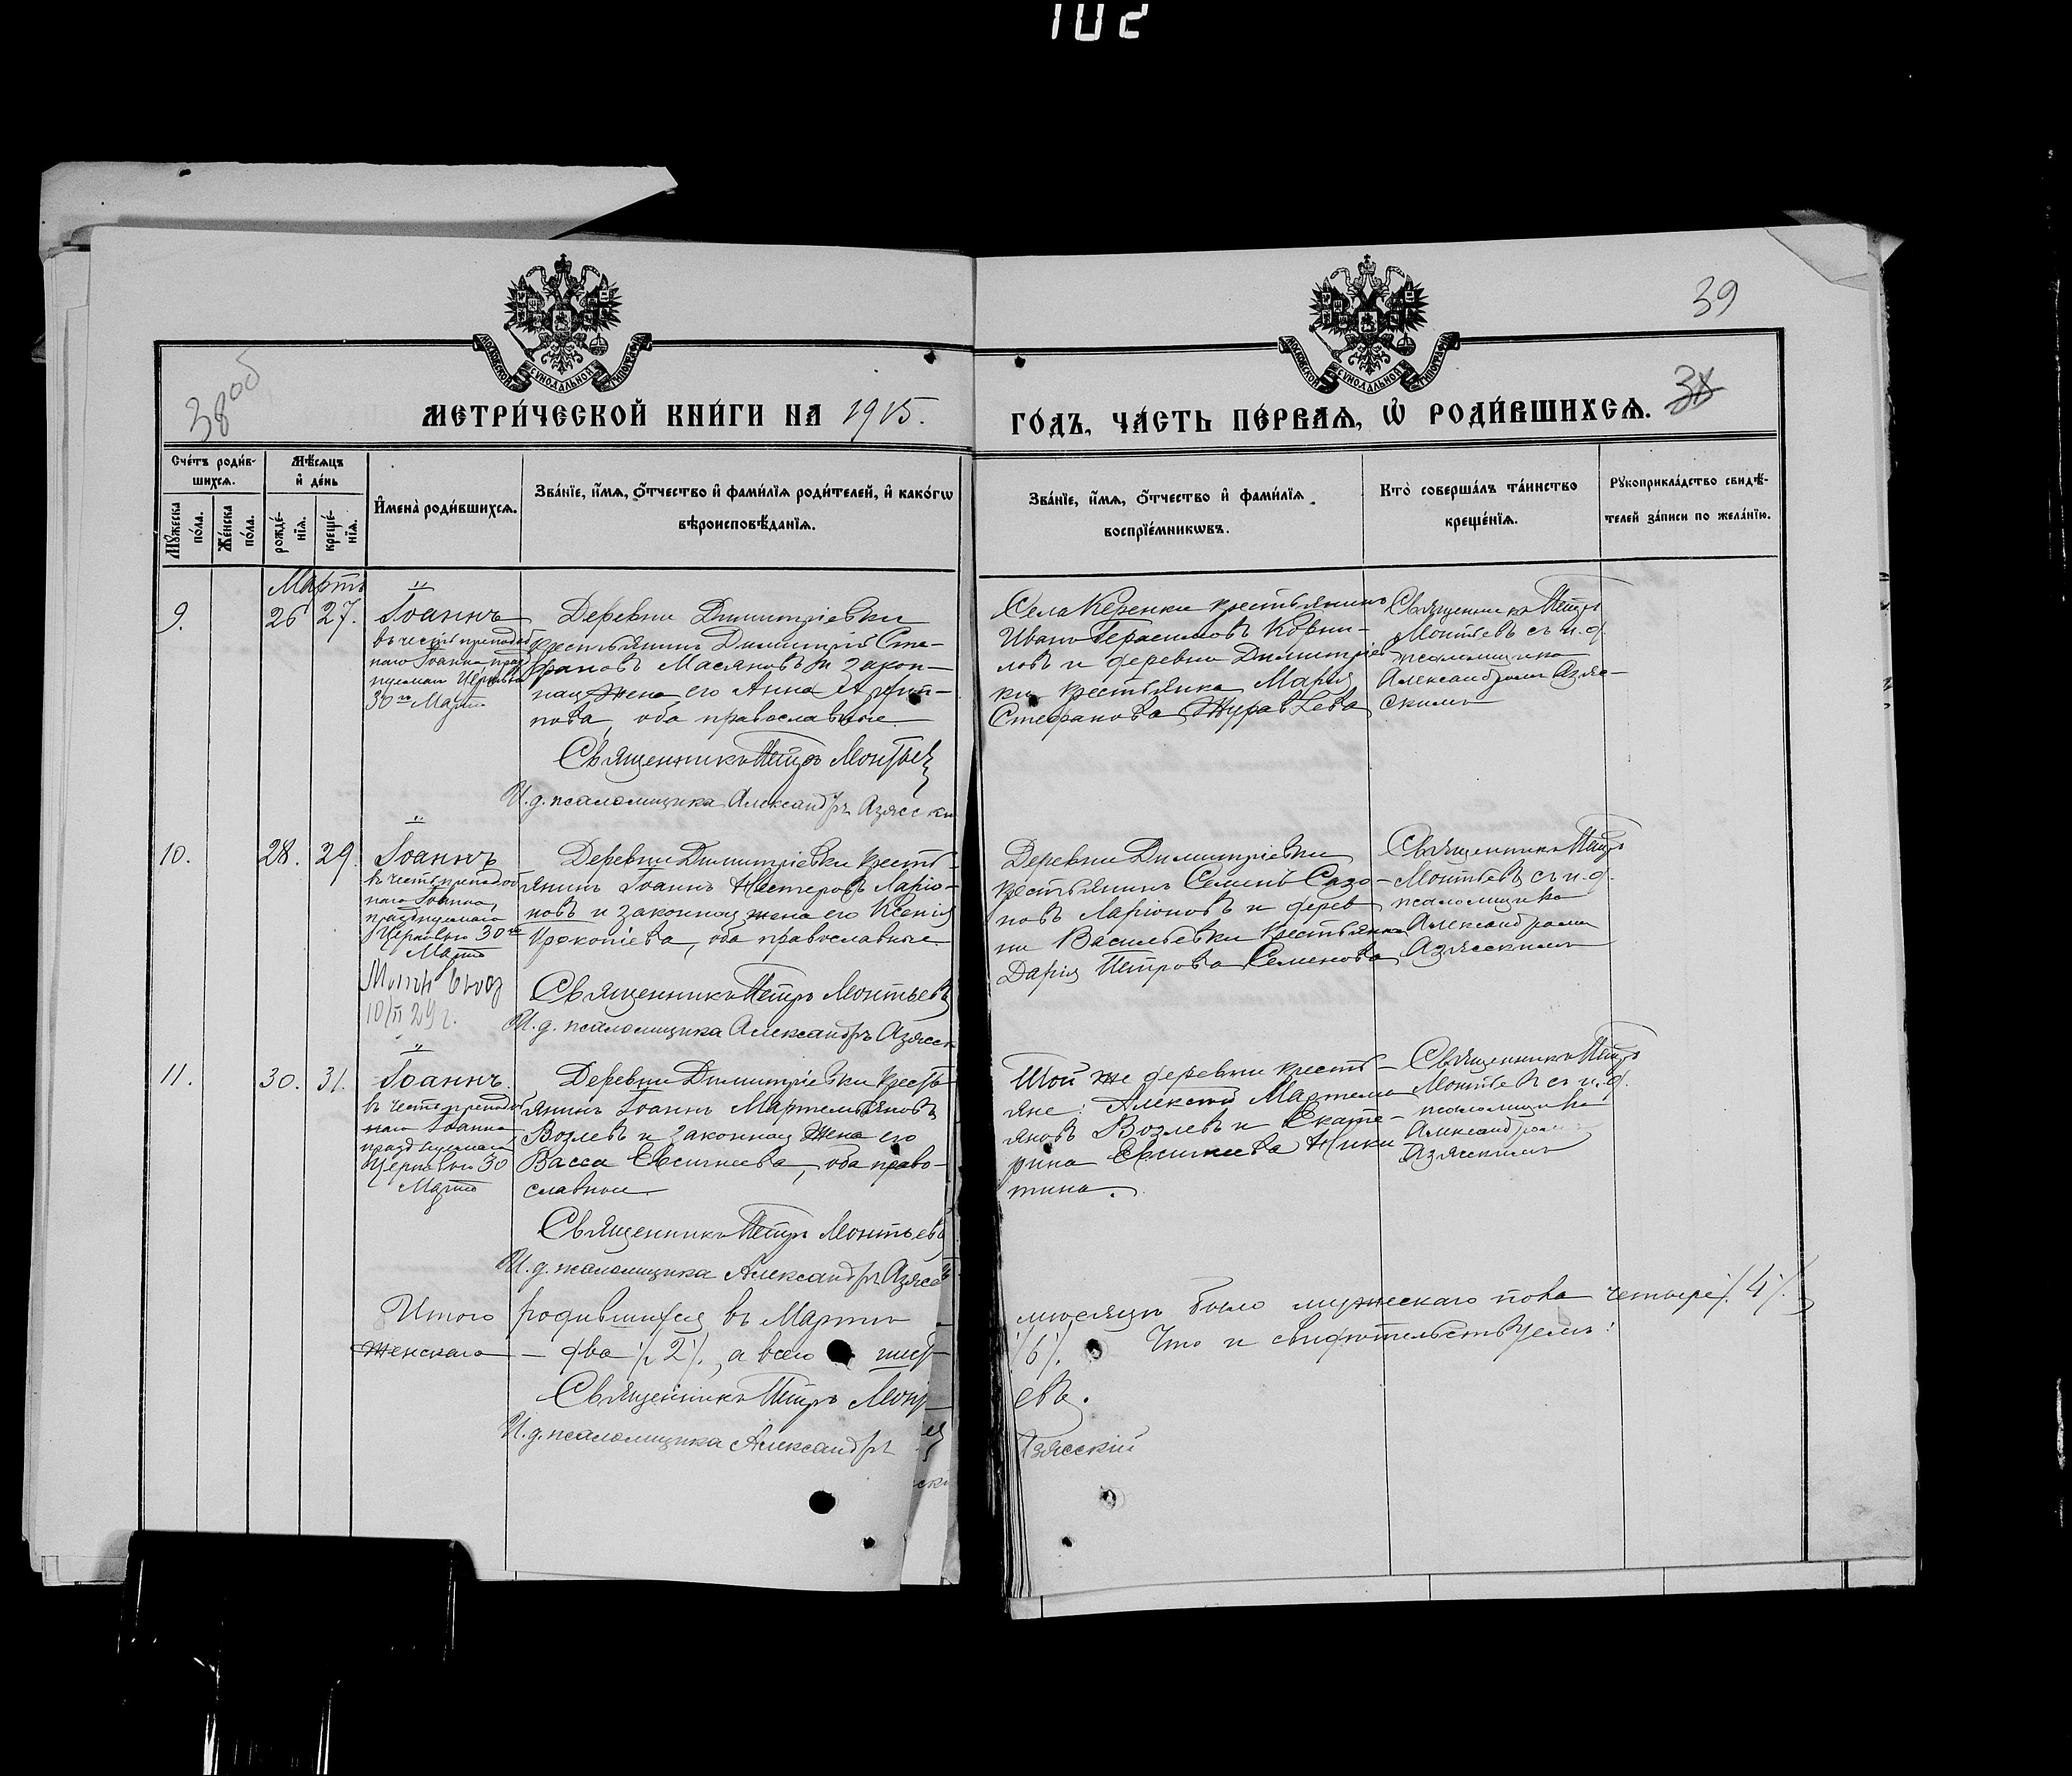 102
39
38 об
38
МЕТРИ́ЧЕСКОЙ КНИ́ГИ НА 1915.
ГО́ДЪ, ЧА́СТЬ ПЕ́РВАѦ, Ѡ҆ РОДИ́ВШИХСѦ.
Сче́тъ роди́в-
шихсѧ.
Мѣ́сѧцъ
и҆ де́нь
Мꙋ́жеска
по́ла.
Же́нска
по́ла.
рожде́-
нїѧ.
креще́-
нїѧ.
И҆мена̀ роди́вшихсѧ.
Зва́нїе, и҆́мѧ, ѻ҆́тчество и҆ фами́лїѧ роди́телей, и҆ како́гѡ
вѣроисповѣ́данїѧ.
Зва́нїе, и҆́мѧ, ѻ҆́тчество и҆ фами́лїѧ
воспрїе́мникѡвъ.
Кто̀ соверша́лъ та́инство
креще́нїѧ.
Рꙋкоприкла́дство свидѣ́-
телей за́писи по жела́нїю.
Мартъ
9.
26
27.
Іоаннъ
въ честь преподоб
наго Іоанна празд
нуемаго Церковью
30го Марта
Деревни Димитріевки
крестьянинъ Димитрій Сте-
фановъ Масановъ и закон-
ная жена его Анна
нова, оба православные
Священникъ Петръ Леонтьевъ
И.д. псаломщика Александръ Азясски
Села Керенки крестьянинъ
Иванъ Герасимовъ Корни-
ловъ и деревни Димитріев
ки крестьянка Марія
Стефанова Журавлева
Священникъ Петръ
Леонтьевъ съ и.д.
псаломщика
Александромъ Азяс-
скимъ
10.
28.
29.
Іоаннъ
въ честь преподоб
наго Іоанна,
празднуемаго
Церковью 30го
Марта
10/II 29 г.
Деревни Димитріевки кресть-
янинъ Іоаннъ Нестеровъ Ларіо-
новъ и законная жена его Ксенія
Прокопіева, оба православные
Священникъ Петръ Леонтьевъ
И.д. псаломщика Александръ Азясск
Деревни Димитріевки
крестьянинъ Семенъ Сазо-
новъ Ларіоновъ и дерев
ни Васильевки крестьянка
Дарія Петрова Семенова
Священникъ Петръ
Леонтьевъ съ и.д.
псаломщика
Александромъ
Азясскимъ
11.
30.
31.
Іоаннъ.
въ честь преподоб
наго Іоанна
празднуемаго
Церковью 30
Марта
Деревни Димитріевки кресть-
янинъ Іоаннъ Мартемьяновъ
Возлевъ и законная жена его
Васса Евсигнеева, оба право-
славные
Священникъ Петръ Леонтьевъ
И.д. псаломщика Александръ Азясс
Той же деревни кресть-
яне: Алексій Мартемь
яновъ Возлевъ и Екате-
рина Евсигнеева Ники
тина.
Священникъ Петръ
Леонтьевъ съ и.д.
псаломщика
Александромъ
Азясскимъ
Итого родившихся въ Мартѣ мѣсяцѣ было мужескаго пола четыре /.4/.
Женскаго – два /.2/., а всего шест /6/. Что и свидѣтельствуемъ:
Священникъ Петръ Леонтьевъ.
И.д. псаломщика Александръ Азясскій